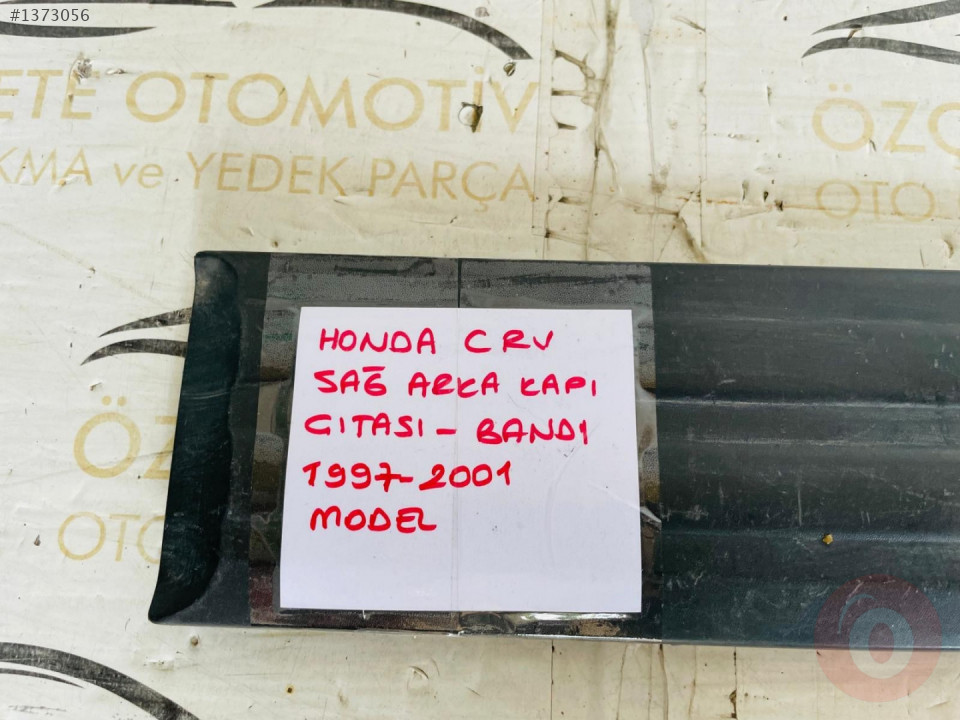 #1373056
ETE OTOMOTİV
KMA ve YEDEK PARÇA
ÖZÇ
OTO
HONDA CRV
SAĞ ARKA KAPI
CITASI - BANDI
1997-2001
MODEL
ÖZ
OTO
O